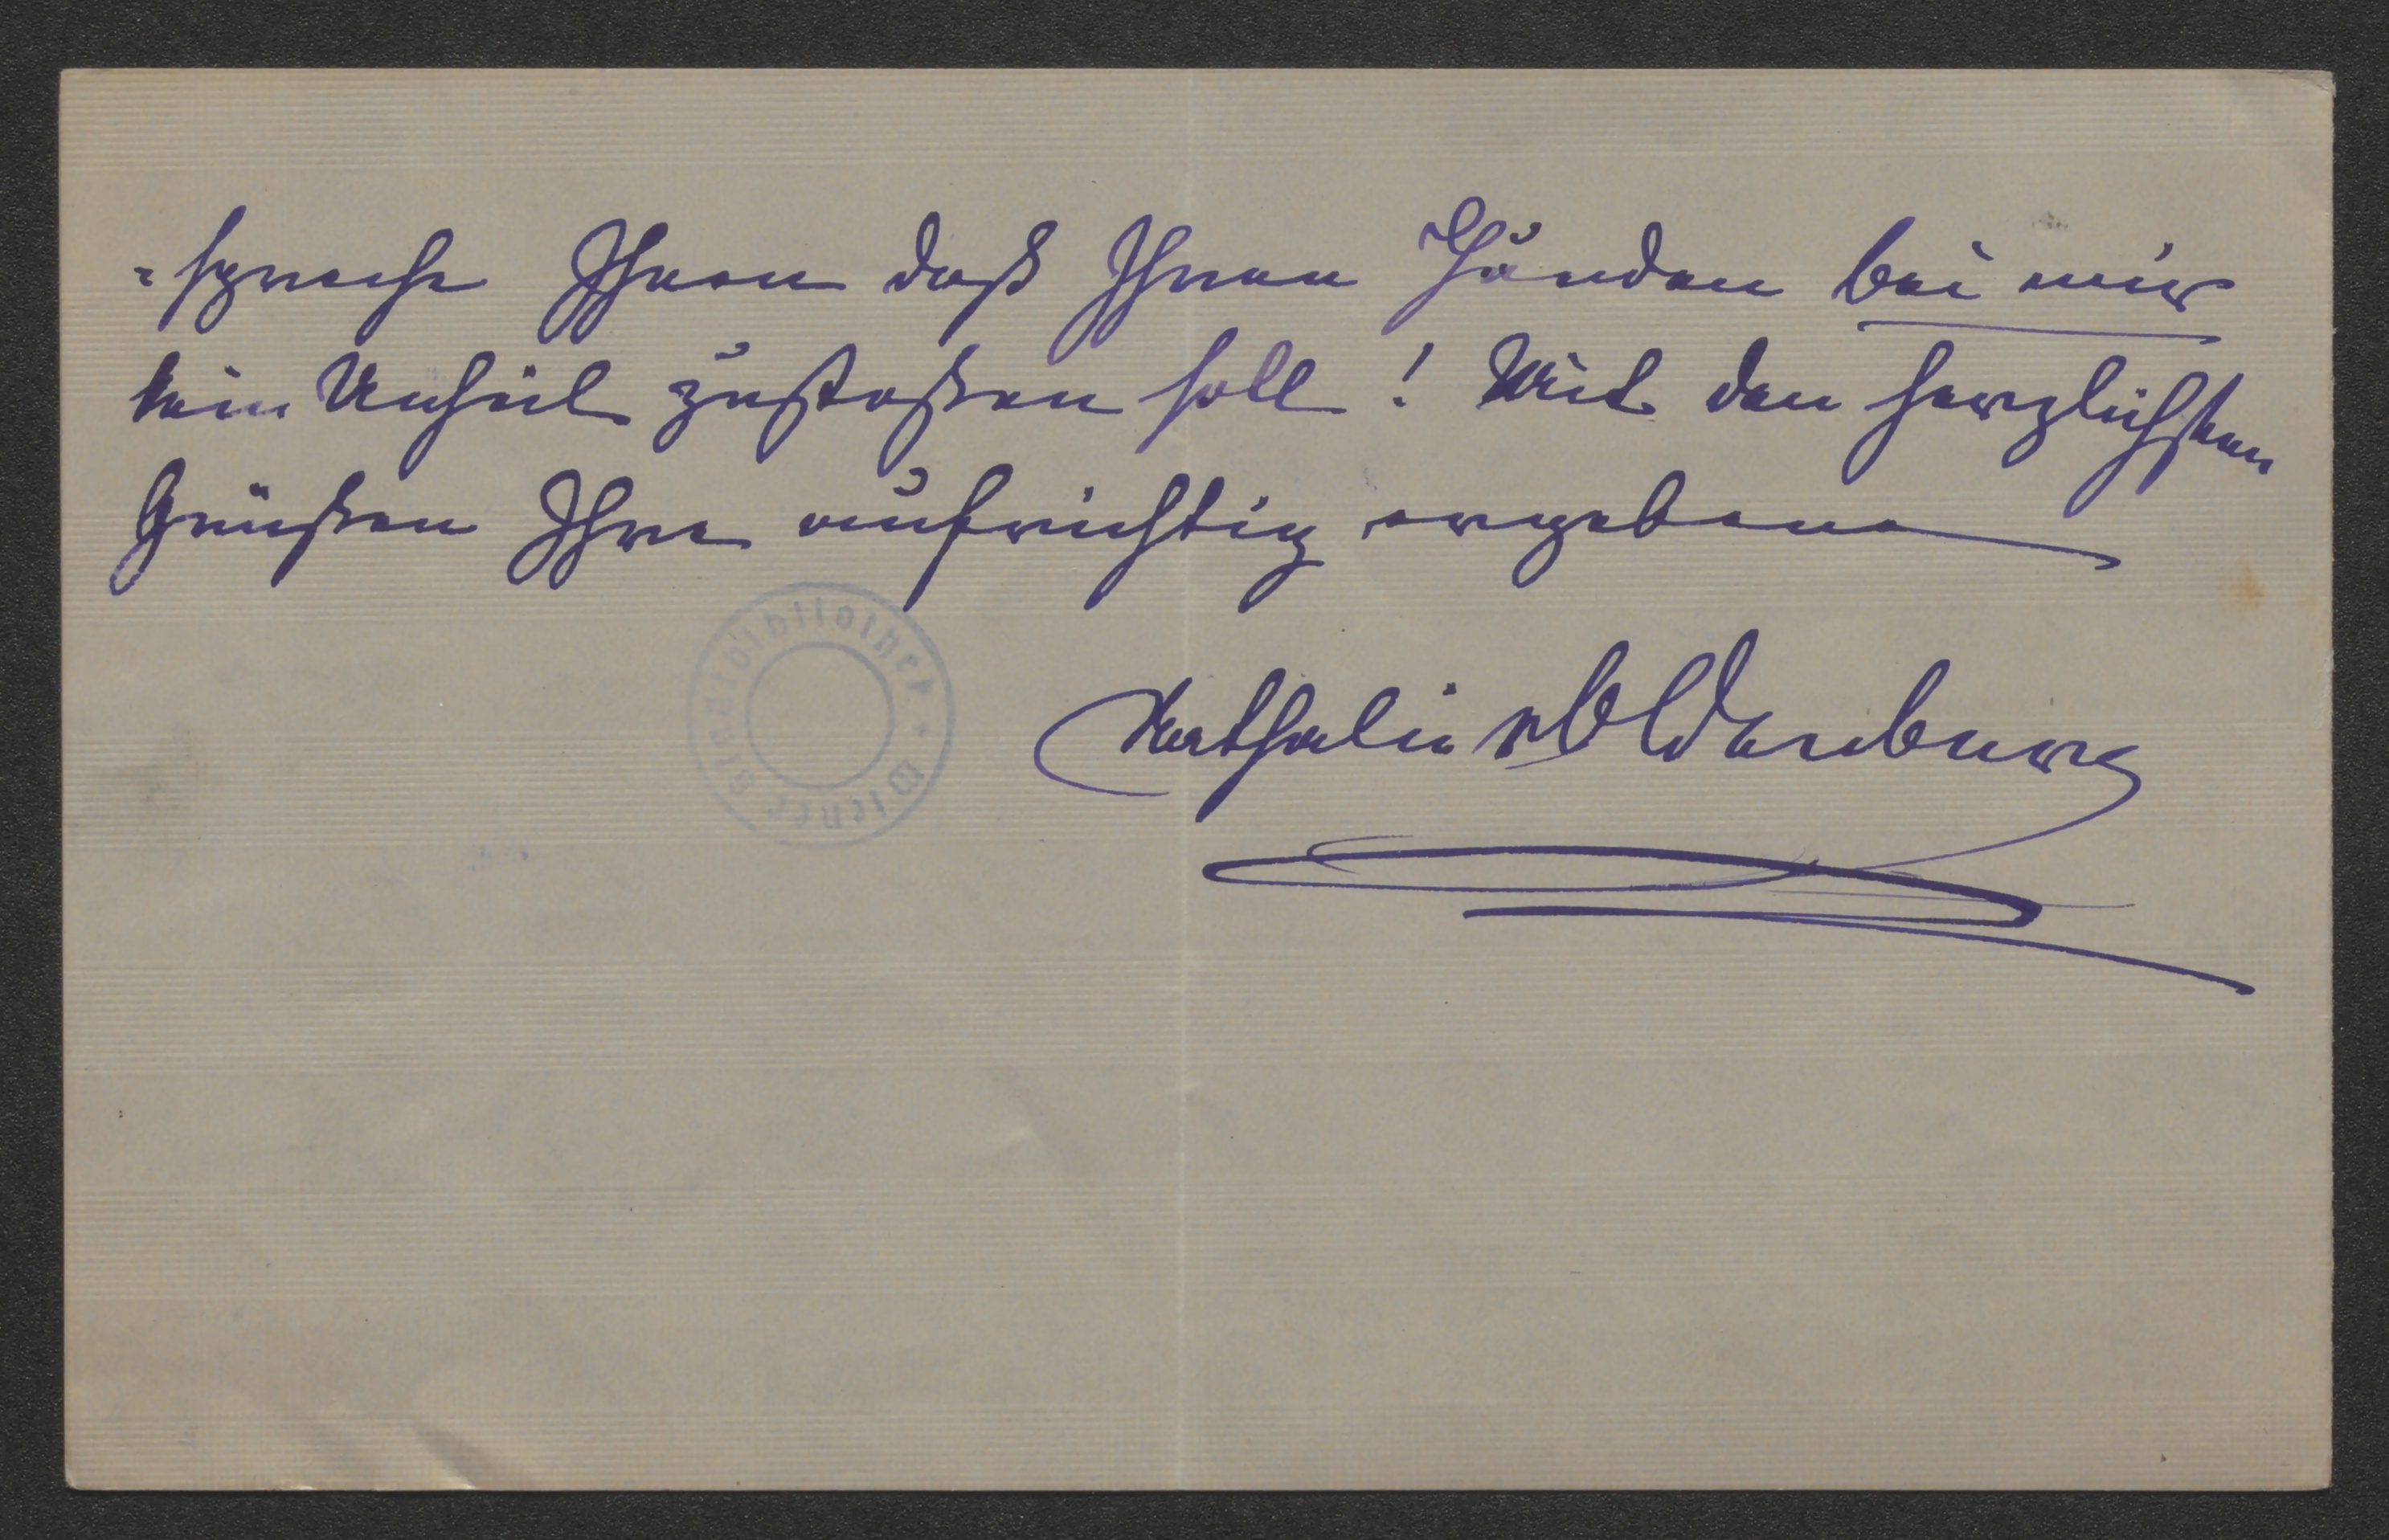 =spreche Ihnen daß Ihren Hunden bei mir
kein Unheil zustoßen soll! Mit den herzlichsten
Grüßen Ihre aufrichtig ergebene
Nathalie v Oldenburg
Wiener Stadtbibliothek